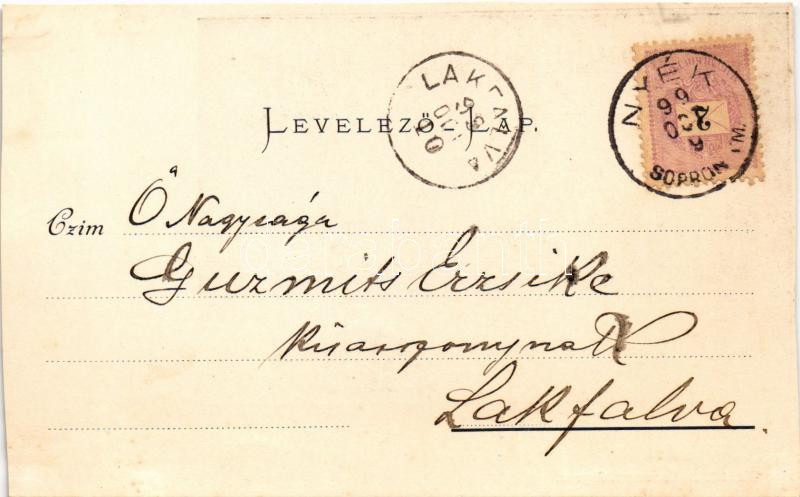 LEVELEZŐ-LAP.
LAKFALVA
NYÉK
SOPRON M.
2
Czim Ő Nagysága
Guzmits Erzsike
kisasszonynak
Lakfalva.